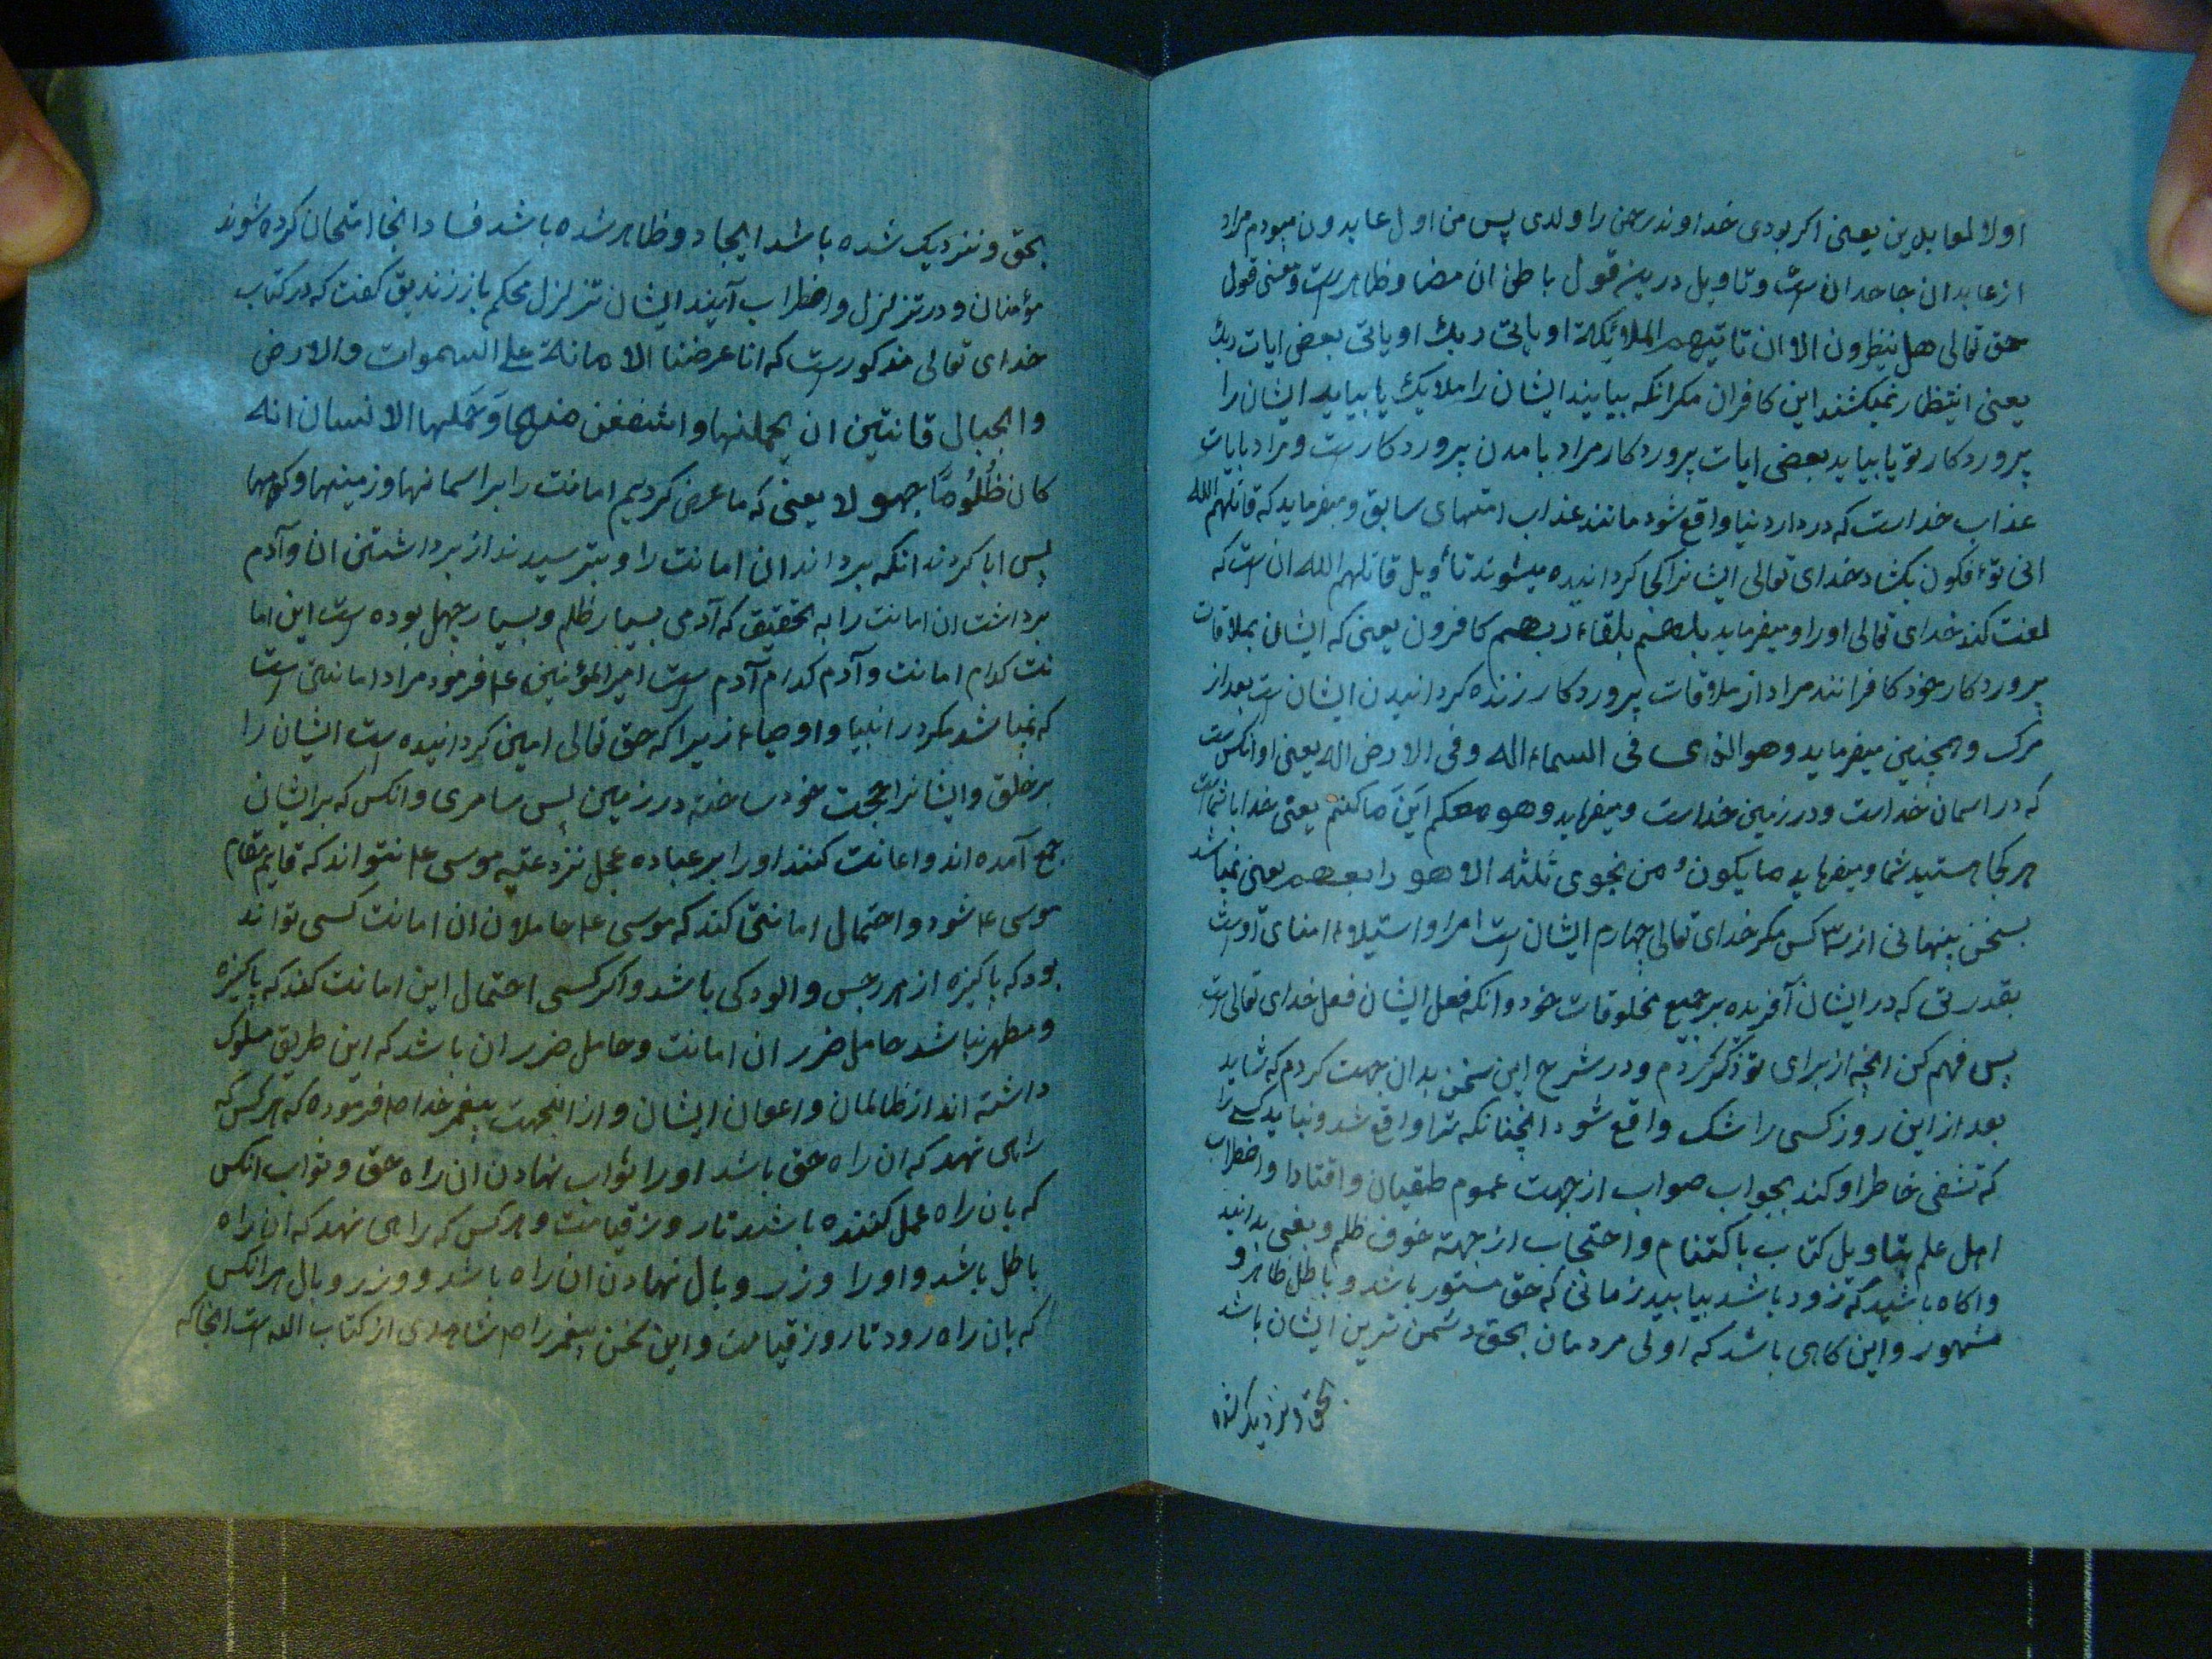 اولا لعابدین یعنی اکر بودی خداوند رحمن را ولدی پس من اول عابدون میبودم مراد
از عابدان جاحدان است و تاویل درین قول باطن ان مضاد ظاهر است و معنی قول
حق تعالی هل ینظرون الا ان تاتیهم الملائکة او یاتی ربک او یاتی بعض ایات ربک
یعنی انتظار نمیکشند این کافران مکر انکه بیایند ایشان را ملایک یا بیاید ایشان را
پروردکار تو یا بیاید بعضی ایات پروردکار مراد بامدن پروردکار است و مراد بایات
عذاب خداست که در دار دنیا واقع شود مانند عذاب امتهای سابق و میفرماید که قاتلهم الله
انی تؤفکون بکشاد خدای تعالی ایشانرا کجا کردانیده میشوند تأویل قاتلهم الله ان است که
لعنت کند خدای تعالی او را و میفرماید بل هم بلقاء ربهم کافرون یعنی که ایشان بملاقات
پروردکار خود کافرانند مراد از ملاقات پروردکار زنده کردانیدن ایشان است بعد از
مرک و همچنین میفرماید وهو الذی فی السماء اله وفی الارض اله یعنی او انکس است
که در اسمان خداست و در زمین خداست و میفرماید وهو معکم این ما کنتم یعنی خدا با شماست
هر کجا هستید شما و میفرماید ما یکون من نجوی ثلثه الا هو رابعهم یعنی نمیباشد
بسخن پنهانی از سه کس مکر خدای تعالی چهارم ایشان است امرا و استیلاء امنای اوست
بقدرتی که در ایشان آفریده بر جمیع مخلوقات خود و انکه فعل ایشان فعل خدای تعالی است
پس فهم کن انچه از برای تو ذکر کردم و در شرح این سخن بدان جهت کردم که شاید
بعد از این روز کسی را شک واقع شود انچنانکه ترا واقع شد و نیابد کسی را
که تشفی خاطر او کند بجواب صواب از جهت عموم طغیان و افتادا و اضطراب
اهل علم بتاویل کتاب باکتتام و احتجاب از جهة خوف ظلم و بغی بدانید
و اکاه باشید که زود باشد بیابید زمانی که حق مستور باشد و باطل ظاهر و
مشهور و این کاهی باشد که اولی مردمان بحق دشمن ترین ایشان باشد
بحق و نزدیک شده
بحق و نزدیک شده باشد ایجاد و ظاهر شده باشد فساد انجا امتحان کرده شوند
مؤمنان و در تزلزل و اضطراب آیند ایشان تزلزل محکم باز زندیق کفت که در کتاب
خدای تعالی مذکور است که انا عرضنا الامانة علی السموات والارض
والجبال فابین ان یحملنها واشفقن منها وَحملها الانسان انه
کان ظلُومًا جهولا یعنی که ما عرض کردیم امانت را بر اسمانها و زمینها و کوهها
پس ابا کردند انکه بردارند ان امانت را و بترسیدند از برداشتن ان و آدم
برداشت ان امانت را به تحقیق که آدمی بسیار ظلم و بسیار جهل بوده است این اما
نت کدام امانت و آدم کدام آدم است امیرالمؤمنین ع فرمود مراد امانتی است
که نمیباشد مکر در انبیا و اوصیاء زیرا که حق تعالی امین کردانیده است ایشان را
بر خلق و ایشانرا حجت خود ساخته در زمین پس سامری و انکس که بر ایشان
جمع آمده اند و اعانت کنند او را بر عباده عجل نزد غیبه موسی ع نتواند که قایم مقام
موسی ع شود و احتمال امانتی کند که موسی ع حاملان ان امانت کسی تواند
بود که پاکیزه از هر رجس و الودکی باشد و اکر کسی احتمال این امانت کند که پاکیزه
و مطهر نباشد حامل ضرر ان امانت و حامل ضرر ان باشد که این طریق سلوک
داشته اند از ظالمان و اعوان ایشان و از اینجهت پیغمبر خدا ص فرموده که هر کس که
راهی نهد که ان راه حق باشد او را ثواب نهادن ان راه حق و ثواب انکس
که بان راه عمل کننده باشد تا روز قیامت و هر کس که راهی نهد که ان راه
باطل باشد و او را وزر و بال نهادن ان راه باشد و وزر و بال هر انکس
که بان راه رود تا روز قیامت و این سخن پیغمبر را ص شاهدی از کتاب الله است انجا که